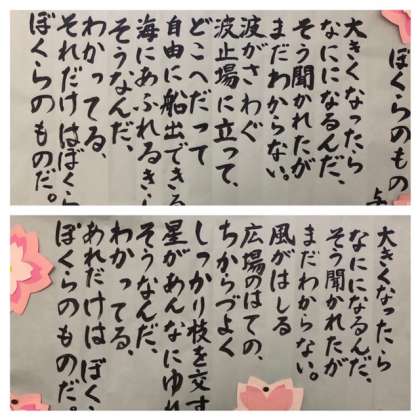 ぼくらのもの
大きくなったら
なにになるんだ、
そう聞かれたが
まだわからない。
波がさわぐ
波止場に立って、
どこへだって
自由に船出できる
海にあふれるき
そうなんだ、
わかってる、
それだけはぼくら
ぼくらのものだ。
大きくなったら
なにになるんだ、
そう聞かれたが
まだわからない。
風がはしる
広場のはての、
ちからづよく
しっかり枝を交す
星があんなにゆれ
そうなんだ、
わかってる、
あれだけはぼく
ぼくらのものだ。